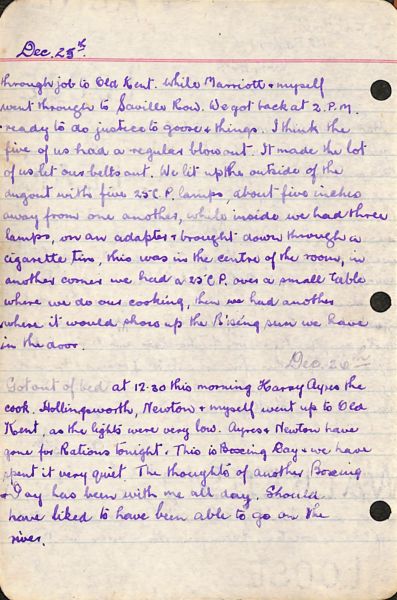 Dec. 25th
through job to Old Kent. While Marriott & myself
went through to Saville Row. We got back at 2. P.M.
ready to do justice to goose & things. I think the
five of us had a regular blow out. It made the lot
of us let our belts out. We lit up the outside of the
dugout with five 25 C.P. lamps, about five inches
away from one another, while inside we had three
lamps, on an adapter & brought down through a
cigarette tin, this was in the centre of the room, in
another corner we had a 25 C.P. over a small table
where we do our cooking, then we had another
where it would show up the Rising sun we have
in the door.
Dec. 26th
Got out of bed at 12.30 this morning Harry Ayres the
cook. Hollingsworth, Newton & myself went up to Old
Kent, as the lights were very low. Ayres & Newton have
gone for Rations tonight. This is Boxing Day & we have
spent it very quiet. The thoughts of another Boxing
Day has been with me all day. Should
have liked to have been able to go on the
river.